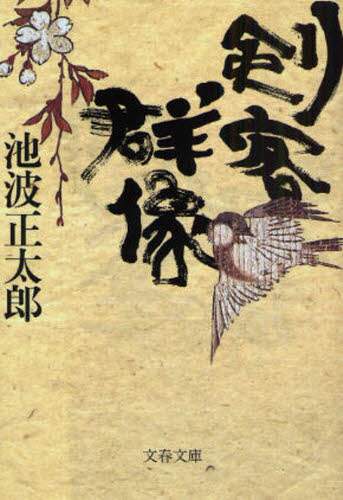 剣客
群像
池波正太郎
文春文庫